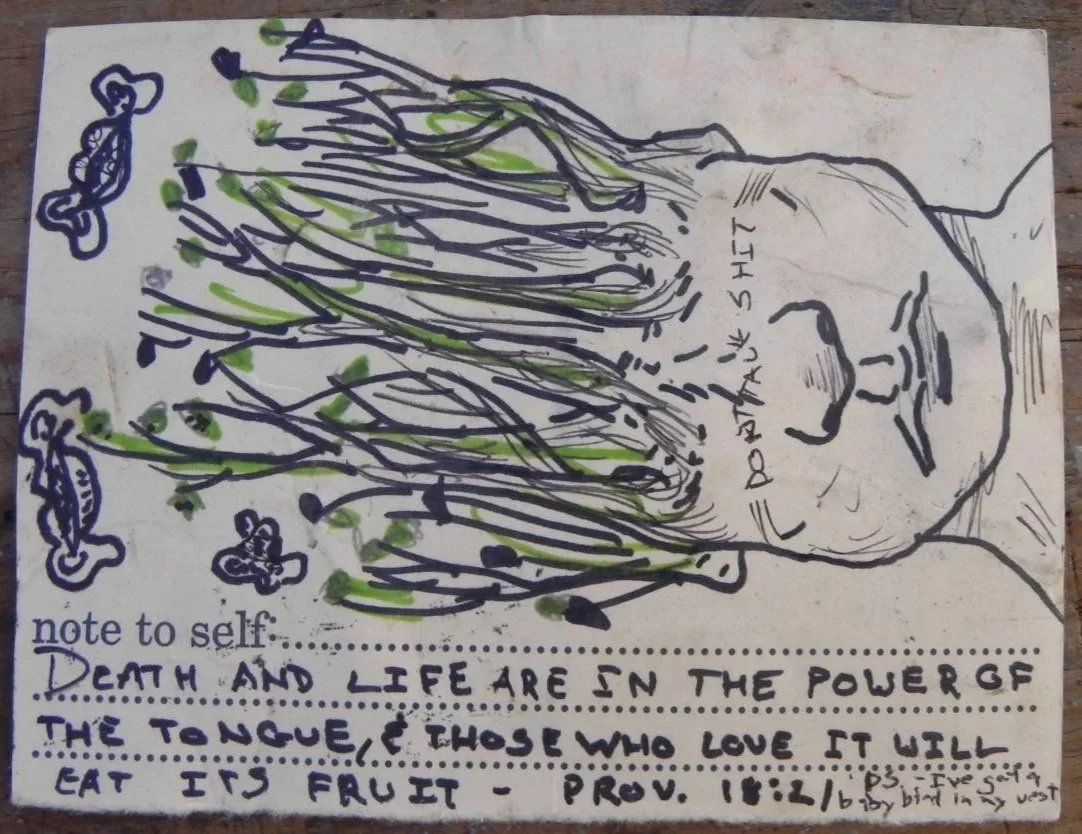 DONT TALK SHIT
note to self:
DEATH AND LIFE ARE IN THE POWER OF
THE TONGUE, & THOSE WHO LOVE IT WILL
EAT ITS FRUIT - PROV. 18:21
PS. - I've got a
baby bird in my vest